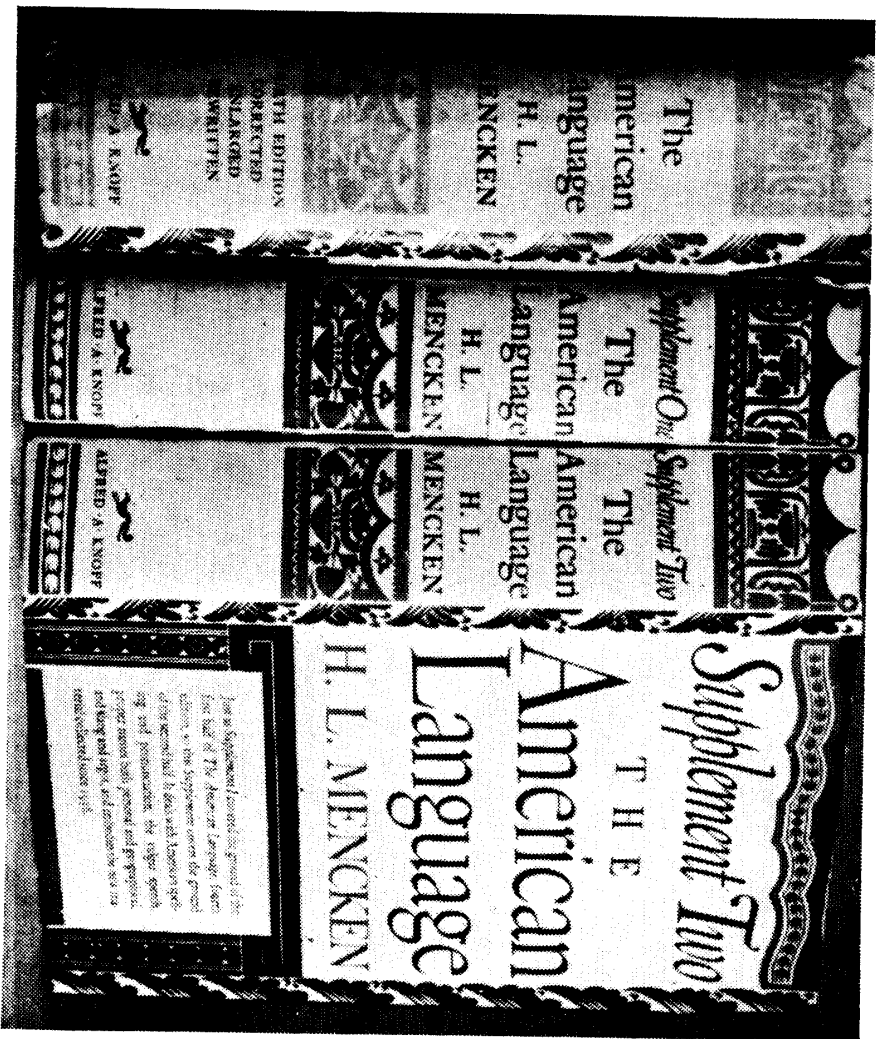 The
merican
anguage
H. L.
ENCKEN
TH EDITION
CORRECTED
ENLARGED
REWRITTEN
A · KNOPF
Supplement One
The
American
Language
H. L.
MENCKEN
ALFRED · A · KNOPF
Supplement Two
The
American
Language
H. L.
MENCKEN
ALFRED · A · KNOPF
Supplement Two
THE
American
Language
H. L. MENCKEN
Just as Supplement I covered the ground of the
first half of The American Language, fourth
edition, so this Supplement covers the ground
of the second half. It deals with American spell-
ing and pronunciation, the vulgar speech,
proper names both personal and geographical,
and slang and argot, and